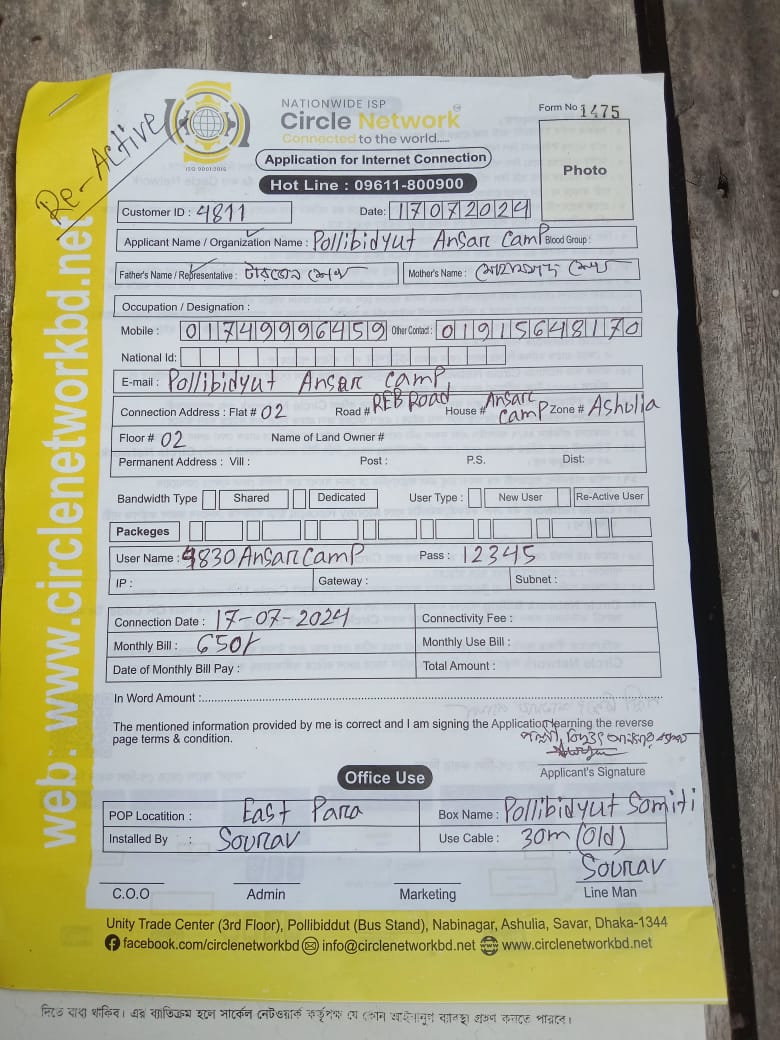 NATIONWIDE ISP
Circle Network
Connected to the world.....
ISO 9001:2015
Re-Active
Form No 1475
Application for Internet Connection
Photo
Hot Line : 09611-800900
Customer ID : 4811 Date: 17072024
Applicant Name / Organization Name : Pollibidyut Ansar Camp Blood Group :
Father's Name / Representative : Mother's Name :
Occupation / Designation :
Mobile : 01749996459 Other Contact : 01915648170
National Id:
E-mail : Pollibidyut Ansar camp
Connection Address : Flat # 02 Road # REB Road House # Ansar camp Zone # Ashulia
Floor # 02 Name of Land Owner #
Permanent Address : Vill : Post : P.S. Dist:
Bandwidth Type Shared Dedicated User Type : New User Re-Active User
Packeges
User Name : 4830 Ansar camp Pass : 12345
IP : Gateway : Subnet :
Connection Date : 17-07-2024 Connectivity Fee :
Monthly Bill : 650/- Monthly Use Bill :
Date of Monthly Bill Pay : Total Amount :
In Word Amount :
The mentioned information provided by me is correct and I am signing the Application learning the reverse
page terms & condition.
পল্লী বিদ্যুৎ আনসার ক্যাম্প
Applicant's Signature
Office Use
POP Locatition : East Para Box Name : Pollibidyut Somiti
Installed By : Sourav Use Cable : 30m (old)
Sourav
C.O.O Admin Marketing Line Man
Unity Trade Center (3rd Floor), Pollibiddut (Bus Stand), Nabinagar, Ashulia, Savar, Dhaka-1344
facebook.com/circlenetworkbd info@circlenetworkbd.net www.circlenetworkbd.net
web : www.circlenetworkbd.net
দিতে বাধ্য থাকিব। এর ব্যতিক্রম হলে সার্কেল নেটওয়ার্ক কর্তৃপক্ষ যে কোন আইনানুগ ব্যবস্থা গ্রহণ করতে পারবে।